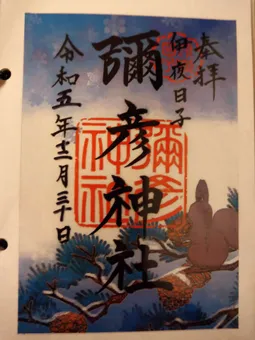 奉拝
伊夜日子
彌彦神社
令和五年十二月三十日
彌彦
神社